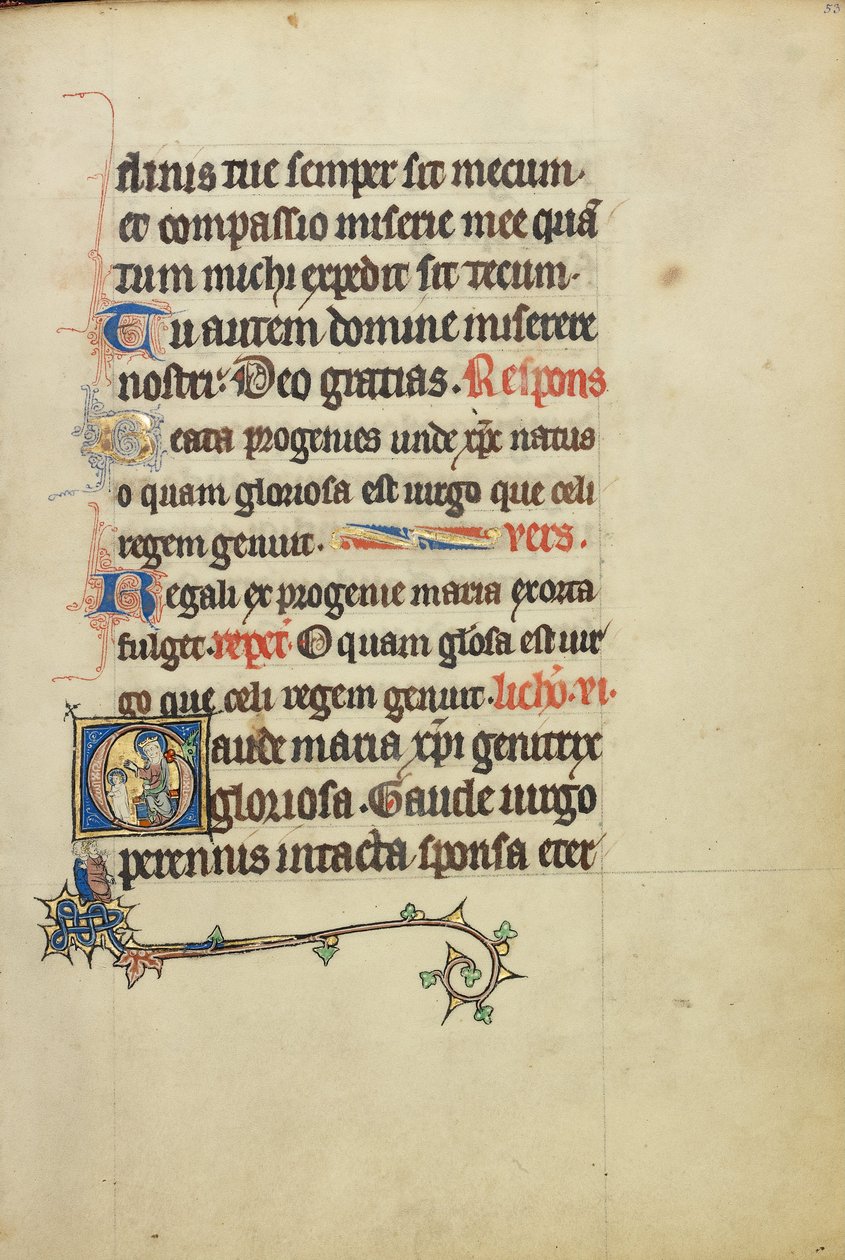 53
dinis tue semper sit mecum.
et compassio miserie mee quā
tum michi expedit sit tecum.
Tu autem domine miserere
nostri. Deo gratias. Respons
Beata progenies unde xp̄c natus
o quam gloriosa est uirgo que celi
regem genuit. vers.
Regali ex progenie maria exorta
fulget. repet̄. O quam gl̄osa est uir
go que celi regem genuit. licħo. vi.
Gaude maria xp̄i genitrix
gloriosa. Gaude uirgo
perennis intacta sponsa eter